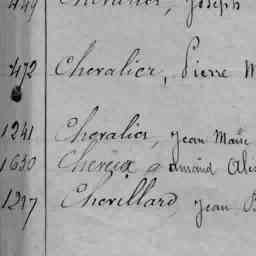 449 Chevalier, Joseph
472 Chevalier, Pierre M
1241 Chevalier, Jean Marie
1630 Chereix, Amand Alex
1297 Chevillard, Jean B